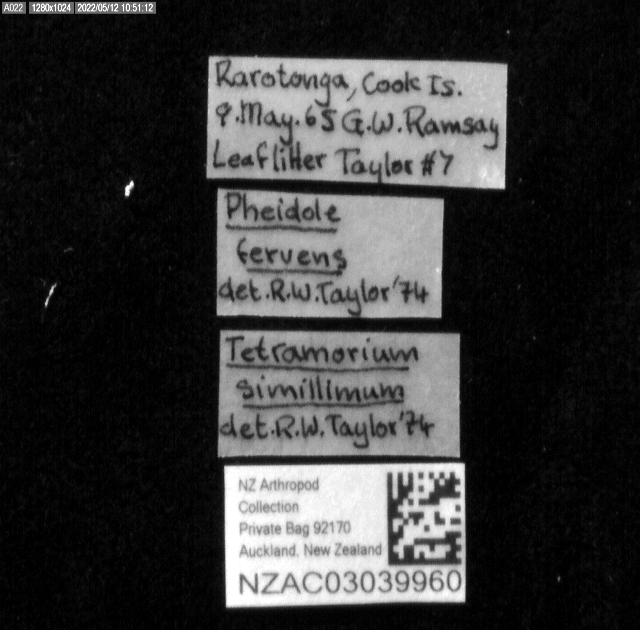 A022 1280x1024 2022/05/12 10:51:12
Rarotonga, Cook Is.
9.May.65 G.W.Ramsay
Leaflitter Taylor #7
Pheidole
fervens
det.R.W.Taylor'74
Tetramorium
simillimum
det.R.W.Taylor'74
NZ Arthropod
Collection
Private Bag 92170
Auckland, New Zealand
NZAC03039960